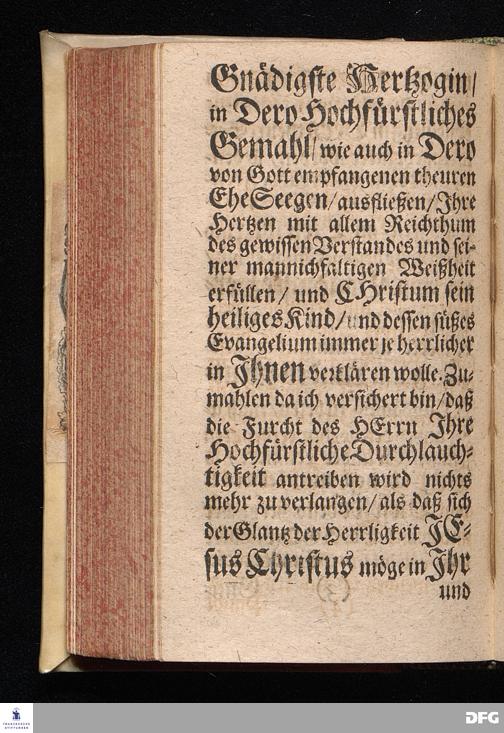 Gnädigste Hertzogin/
in Dero Hochfürstliches
Gemahl/ wie auch in Dero
von Gott empfangenen theuren
EheSeegen/ ausfließen/ Ihre
Hertzen mit allem Reichthum
des gewissen Verstandes und sei-
ner mannichfaltigen Weißheit
erfüllen/ und CHristum sein
heiliges Kind/ und dessen süßes
Evangelium immer je herrlicher
in Ihnen verklären wolle. Zu-
mahlen da ich versichert bin/ daß
die Furcht des HErrn Ihre
Hochfürstliche Durchlauch-
tigkeit antreiben wird nichts
mehr zu verlangen/ als daß sich
der Glantz der Herrligkeit JE-
sus Christus möge in Ihr
und
FRANCKESCHE
STIFTUNGEN
DFG